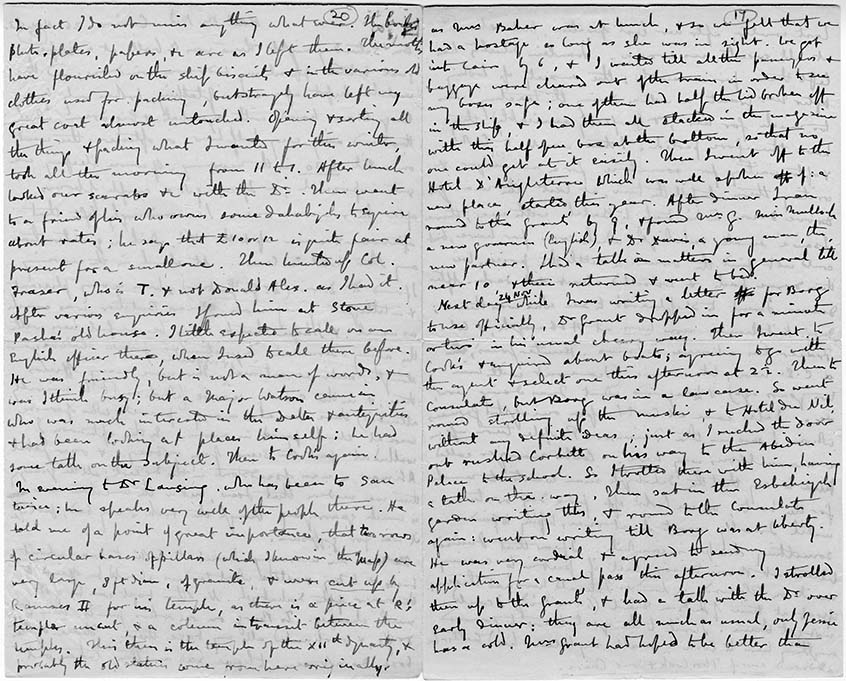 20
In fact I do not miss anything what ever. The
Photo. plates, papers, &c are as I left them. The moths
have flourished on the ship biscuit, & in the various old
clothes used for packing, but strangely have left my
great coat almost untouched. Opening & sorting all
the things & packing what I wanted for this winter,
took all the morning from 11 to 1. After lunch
looked over scarabs &c with the Dr. Then went
to a friend of his who owns some dahabiyehs to enquire
about rates; he says that £10 or 12 is quite fair at
present for a small one. Then hunted up Col.
Fraser, who is T. & not Donald Alex. as I had it.
After various enquiries I found him at Stone
Pasha's old house. I little expected to call on an
English officer there, when I used to call there before.
He was friendly, but is not a man of words, &
was I think busy; but a Major Watson came in
who was much interested in the Delta & antiquities
& had been looking at places himself; he had
some talk on the subject. Then to Cook's again.
In evening to Dr Lansing. who has been to San
twice; he speaks very well of the people there. He
told me of a point of great importance, that two rows
of circular bases of pillars (which I know in the Map) are
very large, 8 ft diam, of granite & were cut up by
Ramses II for his temple, as there is a piece at R's
temple uncut & a column in transit between the
temples. This then is the temple of the XIIth dynasty, &
probably the old statues come from here originally.
17
as Mrs Baker was at lunch, & so we felt that we
had a hostage as long as she was in sight. We got
into Cairo by 6, & I waited till all the passengers &
baggage were cleared out of the train in order to see
my boxes safe; one of them had half the lid broken off
in the ship, & I had them all stacked in the magazine
with this half open box at the bottom, so that no
one could get at it easily. Then I went off to the
Hotel d'Angleterre which was well spoken of: a
new place, started this year. After dinner I ran
round to the Grants' by 9, & found Mrs G. Miss Mullock
a new governess (English), & Dr Davis, a young man, the
new partner. I had a talk on matters in general till
near 10 & then returned & went to bed.
Next day 24 Nov while I was writing a letter for Borg
to use officially, Dr Grant dropped in for a minute
or two in his usual cheery way. Then I went to
Cook's & enquired about boats; agreeing to go with
the agent & select one this afternoon at 2½. Then to
Consulate, but Borg was in a law case. So went
round strolling up the muski & to Hotel du Nil,
without any definite ideas; just as I reached the door
out rushed Corbett on his way to the Abidin
Palace to the School. So I trotted there with him, having
a talk on the way. Then sat in the Esbekiyeh
garden writing this; & round to the Consulate
again: went on writing till Borg was at liberty.
He was very cordial & agreed to sending
application for a canal pass this afternoon. I strolled
then up to the Grants', & had a talk with the Dr over
early dinner: they are all much as usual, only Jessie
has a cold. Mrs Grant had hoped to be better than